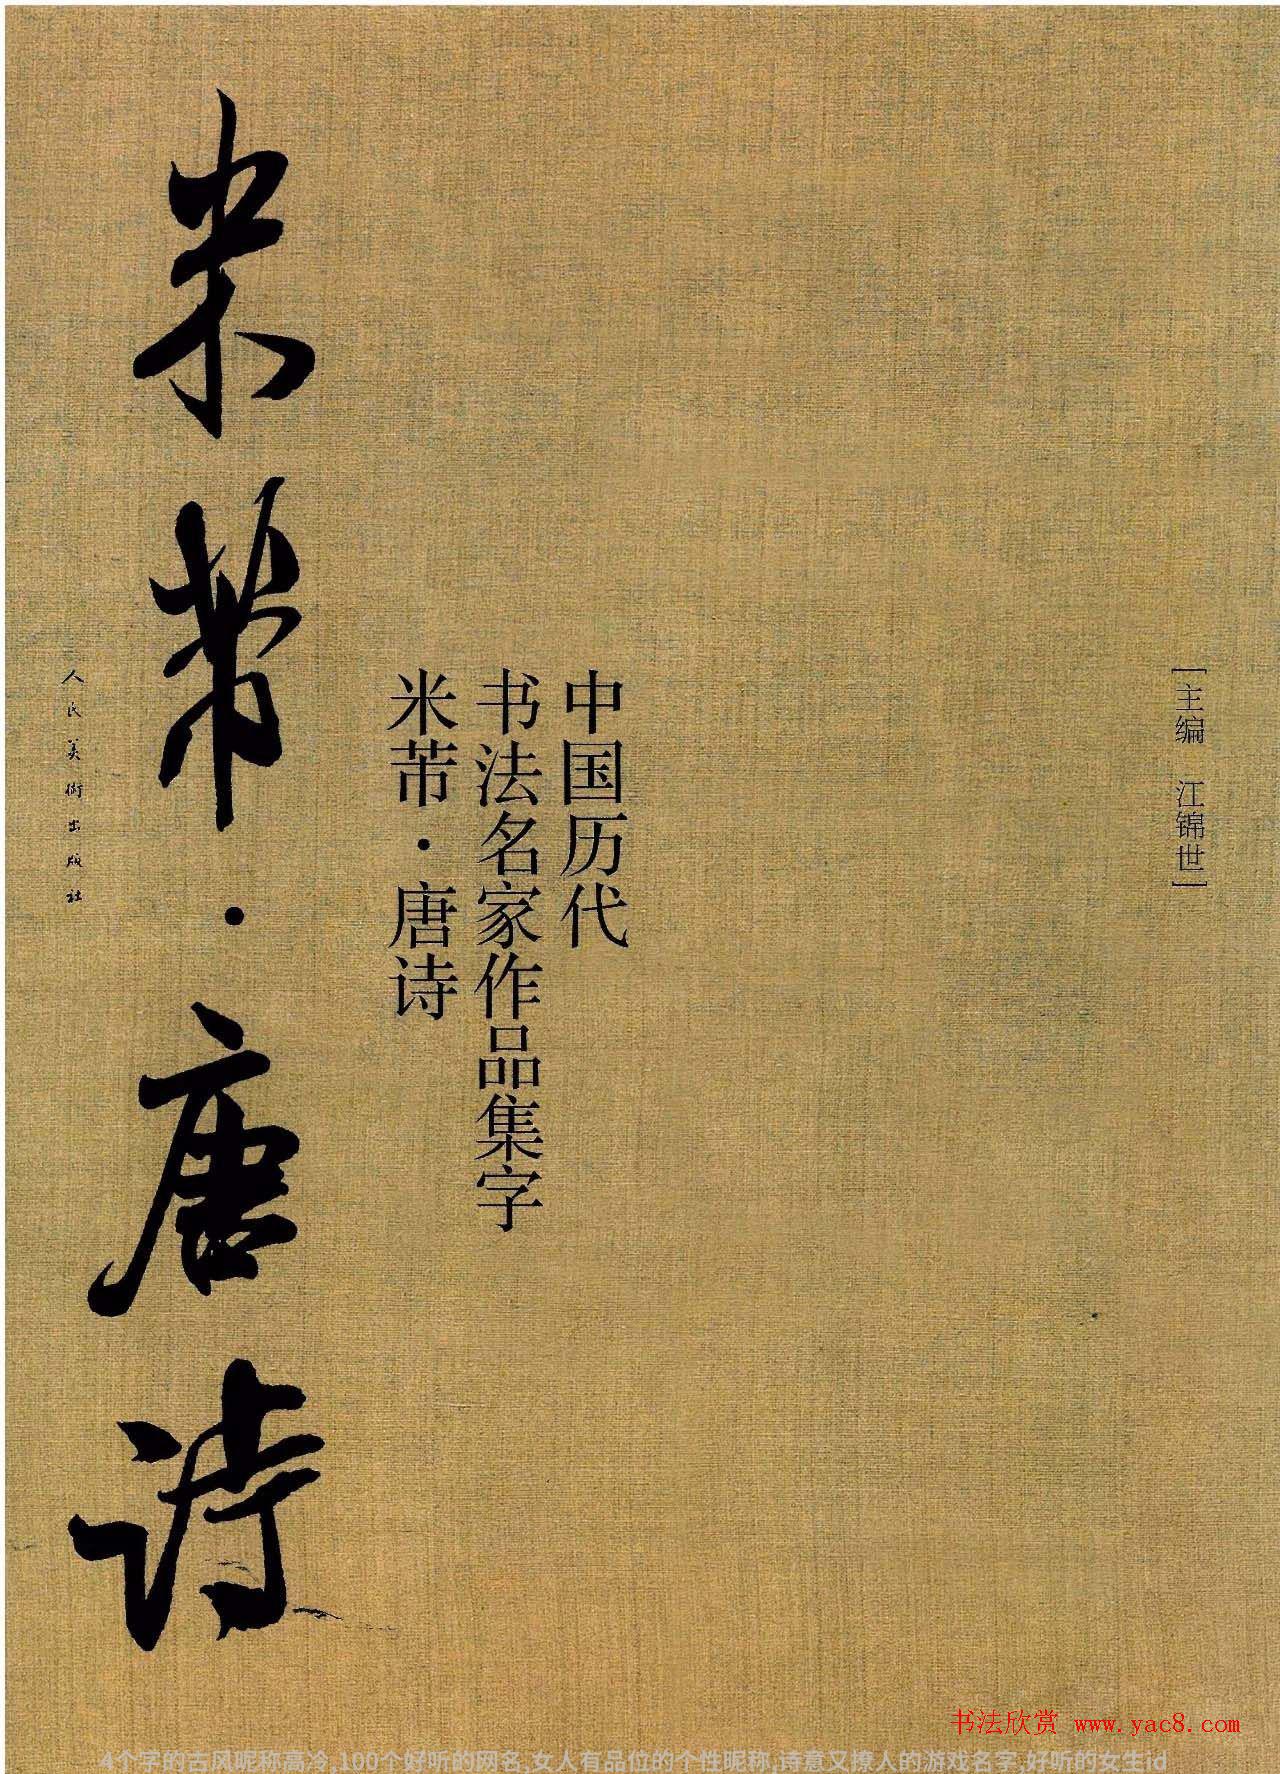 [主编 江锦世]
中国历代
书法名家作品集字
米芾·唐诗
米芾·唐诗
人民美術出版社
书法欣赏 www.yac8.com
4个字的古风昵称高冷,100个好听的网名,女人有品位的个性昵称,诗意又撩人的游戏名字,好听的女生id